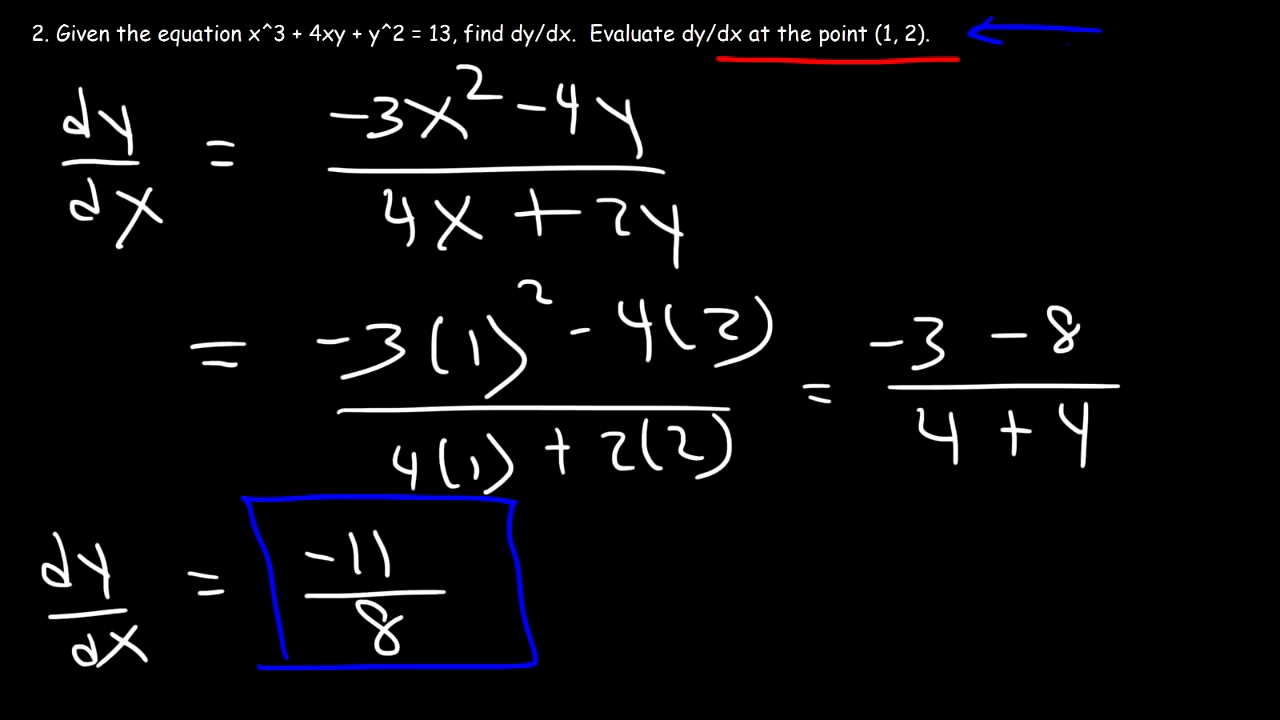 2. Given the equation x^3 + 4xy + y^2 = 13, find dy/dx. Evaluate dy/dx at the point (1, 2).
dy/dx = (-3x² - 4y)/(4x + 2y)
= (-3(1)² - 4(2))/(4(1) + 2(2)) = (-3 - 8)/(4 + 4)
dy/dx = -11/8